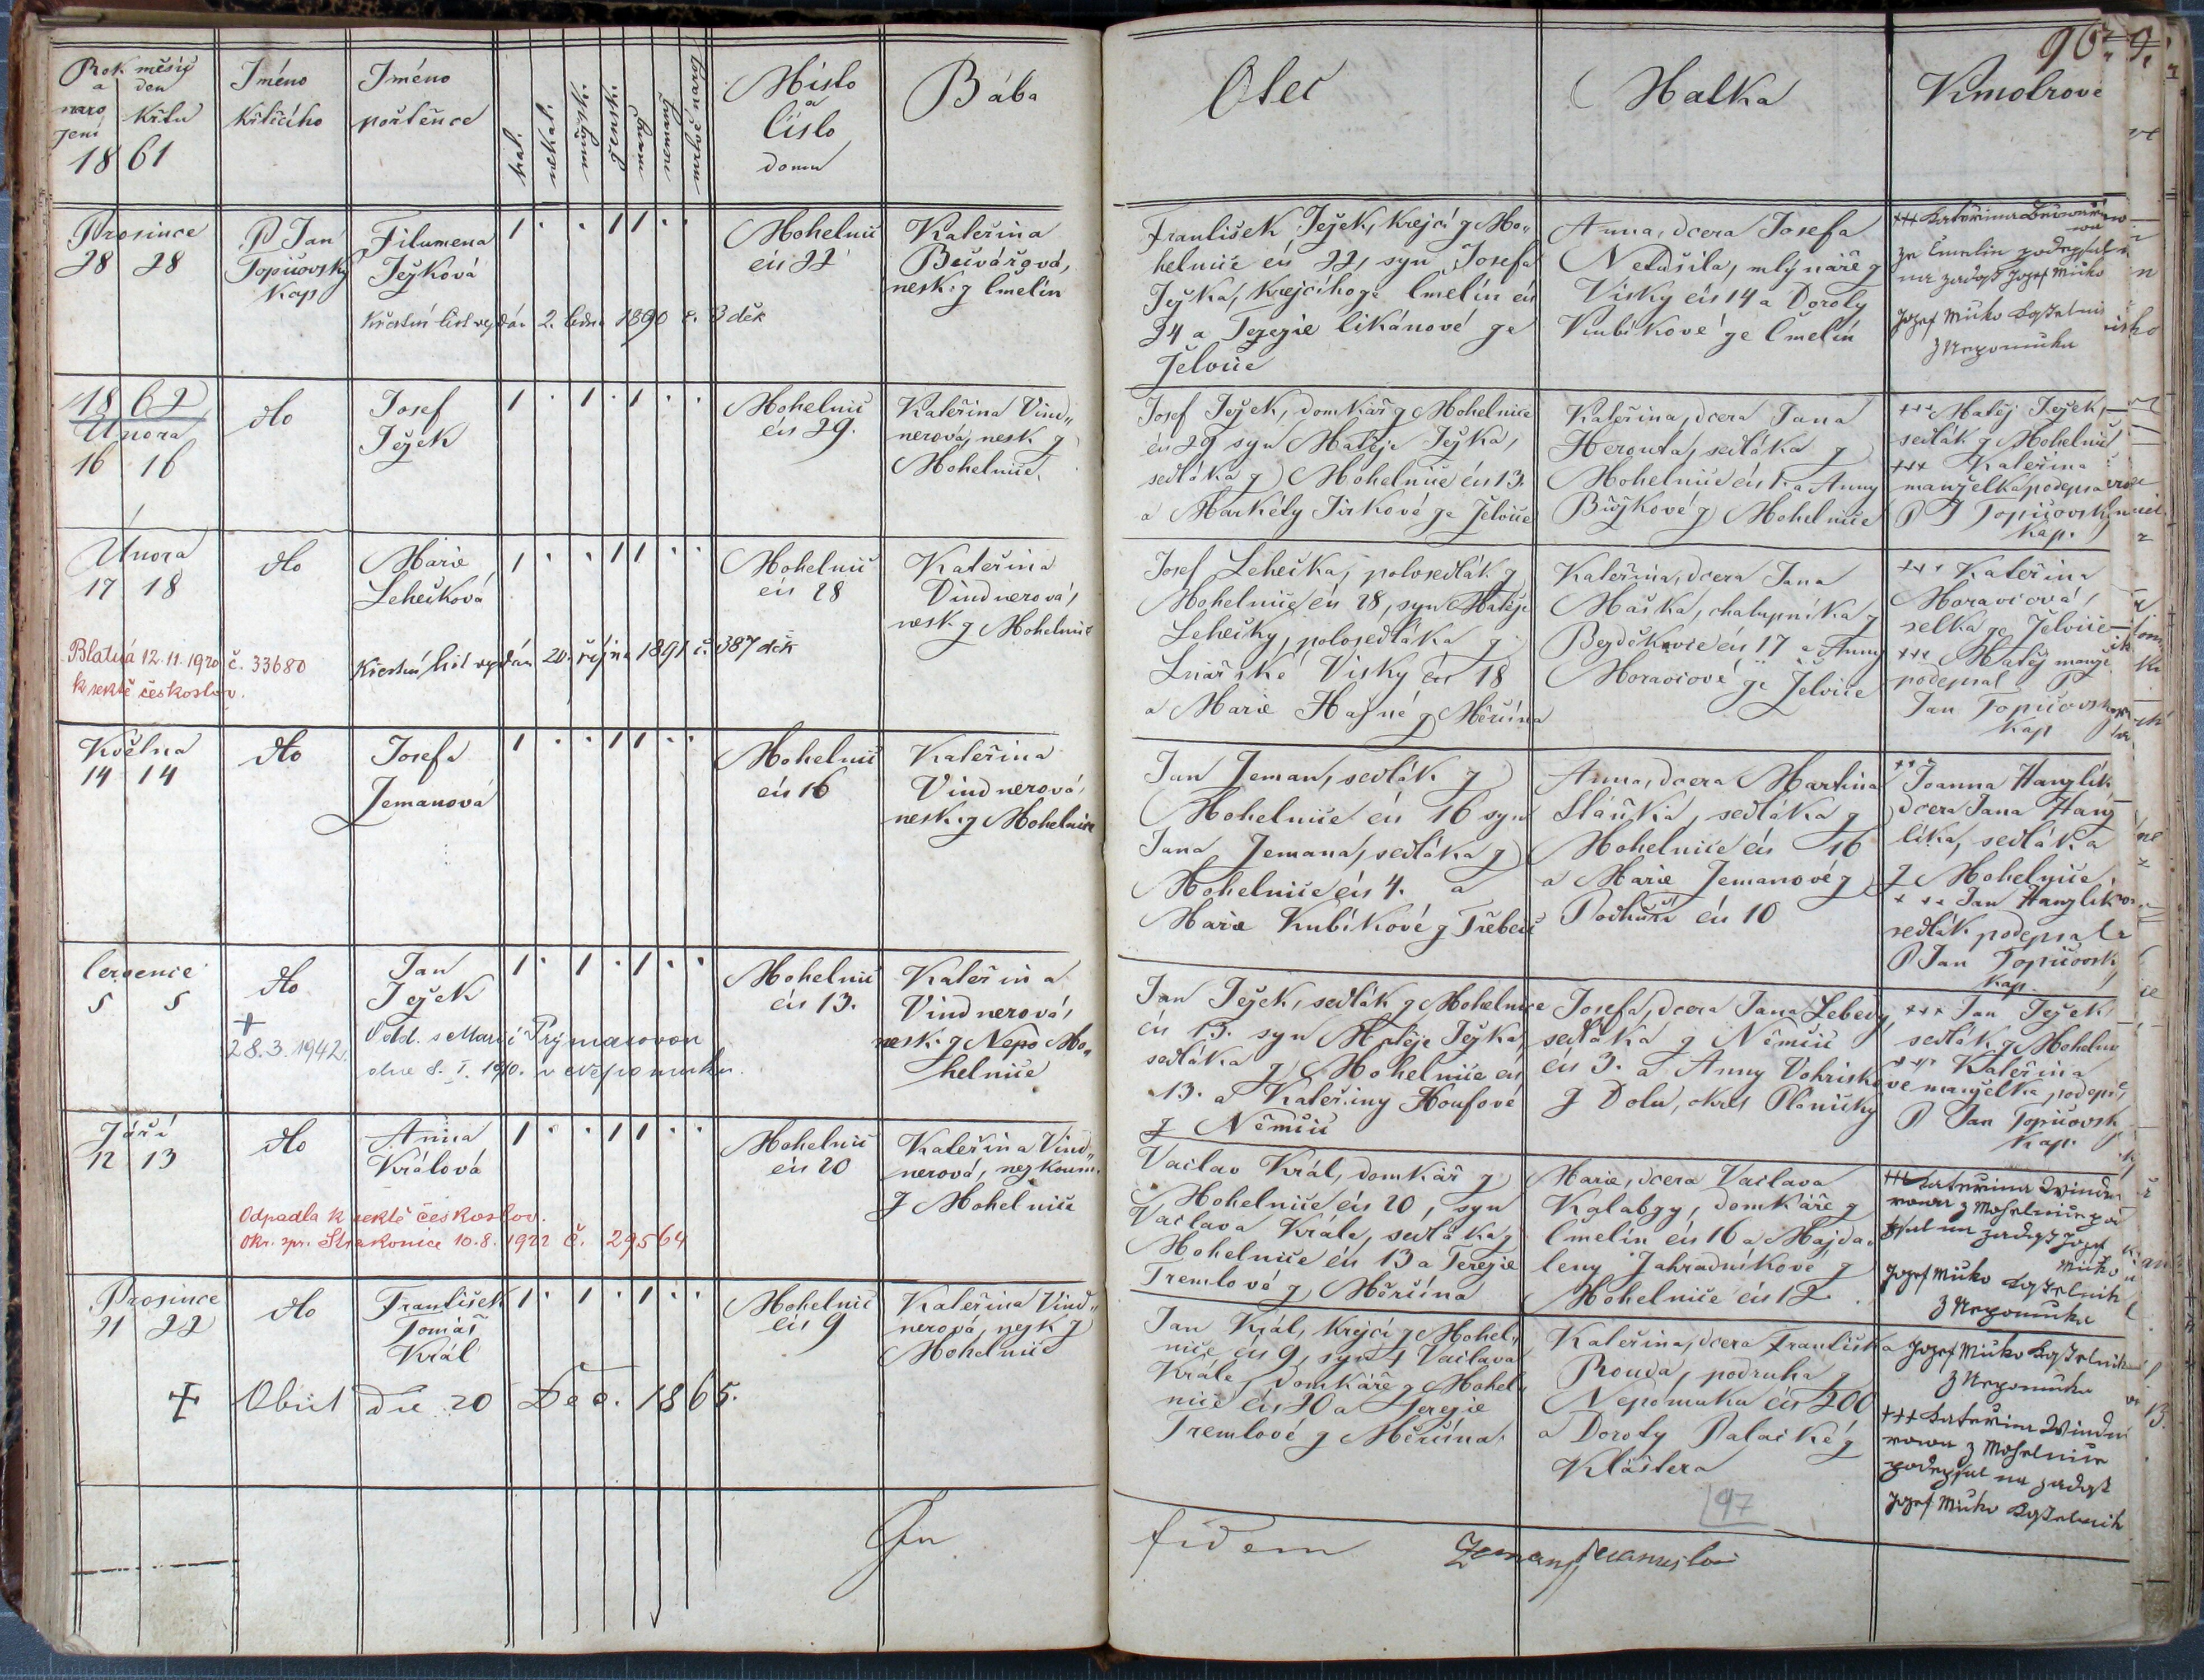 Rok měsíc
a den
naro křtu
zení
18 61
Jméno
křtícího
Jméno
pořtěnce
kat.
nekat.
mužsk.
žensk.
manž.
nemanž.
mrtvě naro
Místo
a
číslo
domu
Bába
Otec
Matka
Kmotrové
96
Prosince
28 28
P Jan
Topičovský
Kap
Filumena
Ježková
Křestní list vydán 2. ledna 1890 č. 3 děk
1 · · 1 1 · ·
Mohelnic
čís 22
Kateřina
Bečvářová,
nesk. z Čmelín
František Ježek, krejčí z Mo„
helnice čís 22, syn Josefa
Ježka, krejčího ze Čmelín čís
24 a Terezie Cikánové ze
Želvice
Anna, dcera Josefa
Netušila, mlynáře z
Vísky čís 14 a Doroty
Kubíkové ze Čmelín
+++ Kateřina
ze Čmelín podepsal
na žádost Jozef Mičko
Jozef Mičko Kostelník
z Nepomuku
18 62
Února
16 16
dto
Josef
Ježek
1 · 1 · 1 · ·
Mohelnic
čís 29.
Kateřina Vind„
nerová, nesk z
Mohelnice.
Josef Ježek, domkář z Mohelnice
čís 29 syn Matěje Ježka,
sedláka z Mohelnice čís 13.
a Markéty Jirkové ze Želvice
Kateřina, dcera Jana
Herouta, sedláka z
Mohelnice čís 1. a Anny
z Mohelnice
+++ Matěj Ježek,
sedlák z Mohelnic
+++ Kateřina
manželka podepsa
P J Topičovský
Kap.
Února
17 18
dto
Marie
Lehečková
Blatná 12.11.1920 č. 33680
k sektě českoslov.
Křestní list vydán 20. října 1891 č. 387 děk
1 · · 1 1 · ·
Mohelnic
čís 28
Kateřina
Vindnerová,
nesk z Mohelnic
Josef Lehečka, polosedlák z
Mohelnice čís 28, syn Matěje
Lehečky, polosedláka z
Lnářské Vísky čís 18
a Marie Hajné z Měčína
Kateřina, dcera Jana
Maška, chalupníka z
Bezděkovce čís 17 a Anny
Moravcové ze Želvice
+++ Kateřina
Moravcová,
selka ze Želvice
+++ Matěj manže
podepsal P
Jan Topičovský
Kap
Května
14 14
dto
Josefa
Zemanová
1 · · 1 1 · ·
Mohelnic
čís 16
Kateřina
Vindnerová,
nesk. z Mohelnice
Jan Zeman, sedlák z
Mohelnice čís 16 syn
Jana Zemana, sedláka z
Mohelnice čís 4. a
Marie Kubíkové z Třebčic
Anna, dcera Martina
Slánka, sedláka z
Mohelnice čís 16
a Marie Zemanové z
Podhůří čís 10
++ Joanna Hanzlík
dcera Jana Hanz
líka, sedláka
z Mohelnice,
+++ Jan Hanzlík
sedlák podepsala
P Jan Topičovsk
Kap.
Červenec
5 5
dto
+
28.3.1942.
Jan
Ježek
Odd. s Marií Prýmasovou
dne 8. I. 1910. v Nepomuku.
1 · 1 · 1 · ·
Mohelnic
čís 13.
Kateřina
Vindnerová,
nesk. z Nepo Mo„
helnice
Jan Ježek, sedlák z Mohelnice
čís 13. syn Matěje Ježka,
sedláka z Mohelnice čís
13. a Kateřiny Houfové
z Němčic
Josefa, dcera Jana Lebedy,
sedláka z Němčic
čís 3. a Anny Vohriskové
z Dolu, okres Plánický
+++ Jan Ježek,
sedlák z Mohelnic
+++ Kateřina
manželka, podepsa
P Jan Topičovsk
Kap.
Září
12 13
dto
Anna
Králová
Odpadla k sektě českoslov.
Okr. zpr. Strakonice 10.8.1922 č. 29564
1 · · 1 1 · ·
Mohelnic
čís 20
Kateřina Vind„
nerová, nezkoum.
z Mohelnice
Václav Král, domkář z
Mohelnice čís 20, syn
Václava Krále, sedláka z
Mohelnice čís 13 a Terezie
Tremlové z Měčína
Marie, dcera Václava
Kalabzy, domkáře z
Čmelín čís 16 a Majda„
leny Zahradníkové z
Mohelnice čís 12.
+++ Kateřina Windne
rowa z Mohelnice pod
psal na žádost Jozef
Mičko
Jozef Mičko Kostelník
z Nepomuku
Prosince
21 22
dto
František
Tomáš
Král
1 · 1 · 1 · ·
+ Obiit die 20 Dec. 1865.
Mohelnic
čís 9
Kateřina Vind„
nerová, nezk z
Mohelnice
Jan Král, krejčí ze Mohel„
nice čís 9, syn † Václava
Krále, domkáře z Mohel„
nice čís 20 a Terezie
Tremlové z Měčína.
Kateřina, dcera Františka
Rouda, podruha z
Nepomuku čís 200
a Doroty Palacké z
Kláštera
Jozef Mičko Kostelník
z Nepomuku
+++ Kateřina Windne
rowa z Mohelnice
podepsal na žádost
Jozef Mičko Kostelník
97
In fidem